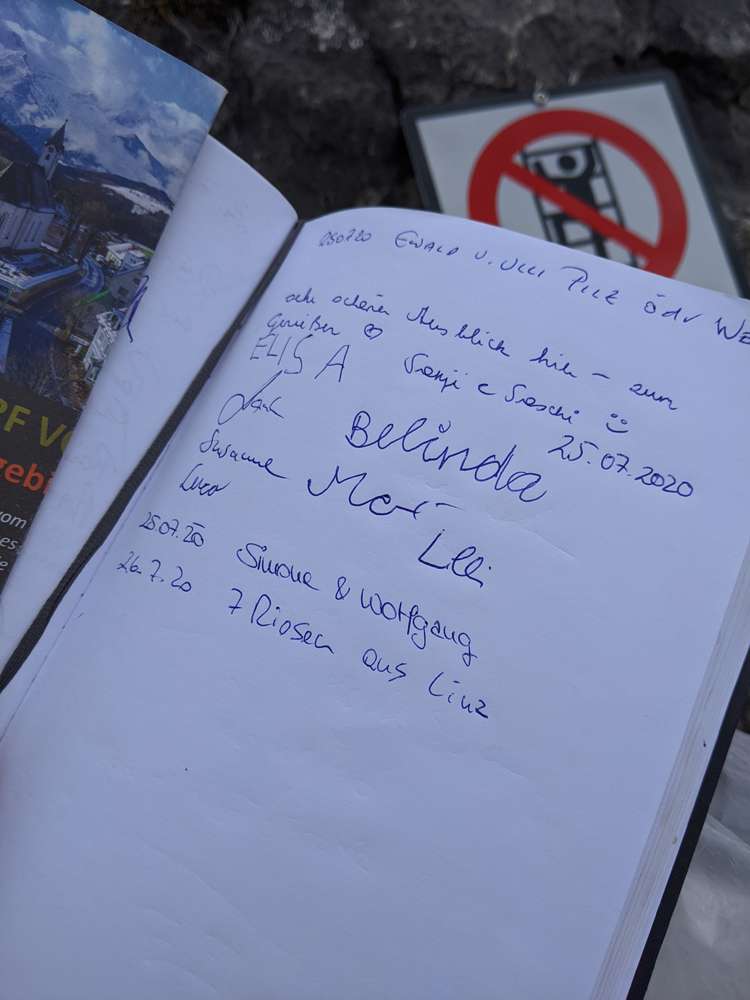 PF V
gebi
vom
es
250720 EWALD u. ULLI PILZ ÖDV WE
sehr schöner Ausblick hier – zum
Genießen ♡
ELISA
Belinda 25.07.2020
Susanne
Luca
25.07.20 Simone & Wolfgang
26.7.20 7 Riesen aus Linz